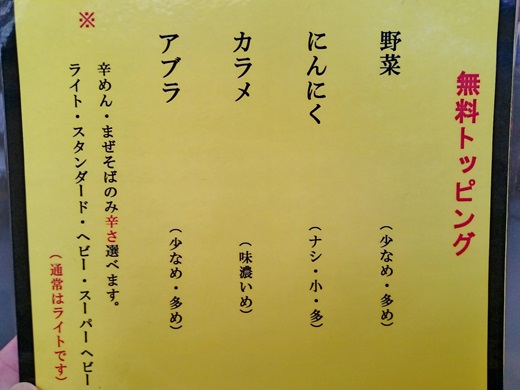 無料トッピング
野菜 （少なめ・多め）
にんにく （ナシ・小・多）
カラメ （味濃いめ）
アブラ （少なめ・多め）
※ 辛めん・まぜそばのみ辛さ選べます。
ライト・スタンダード・ヘビー・スーパーヘビー
（通常はライトです）